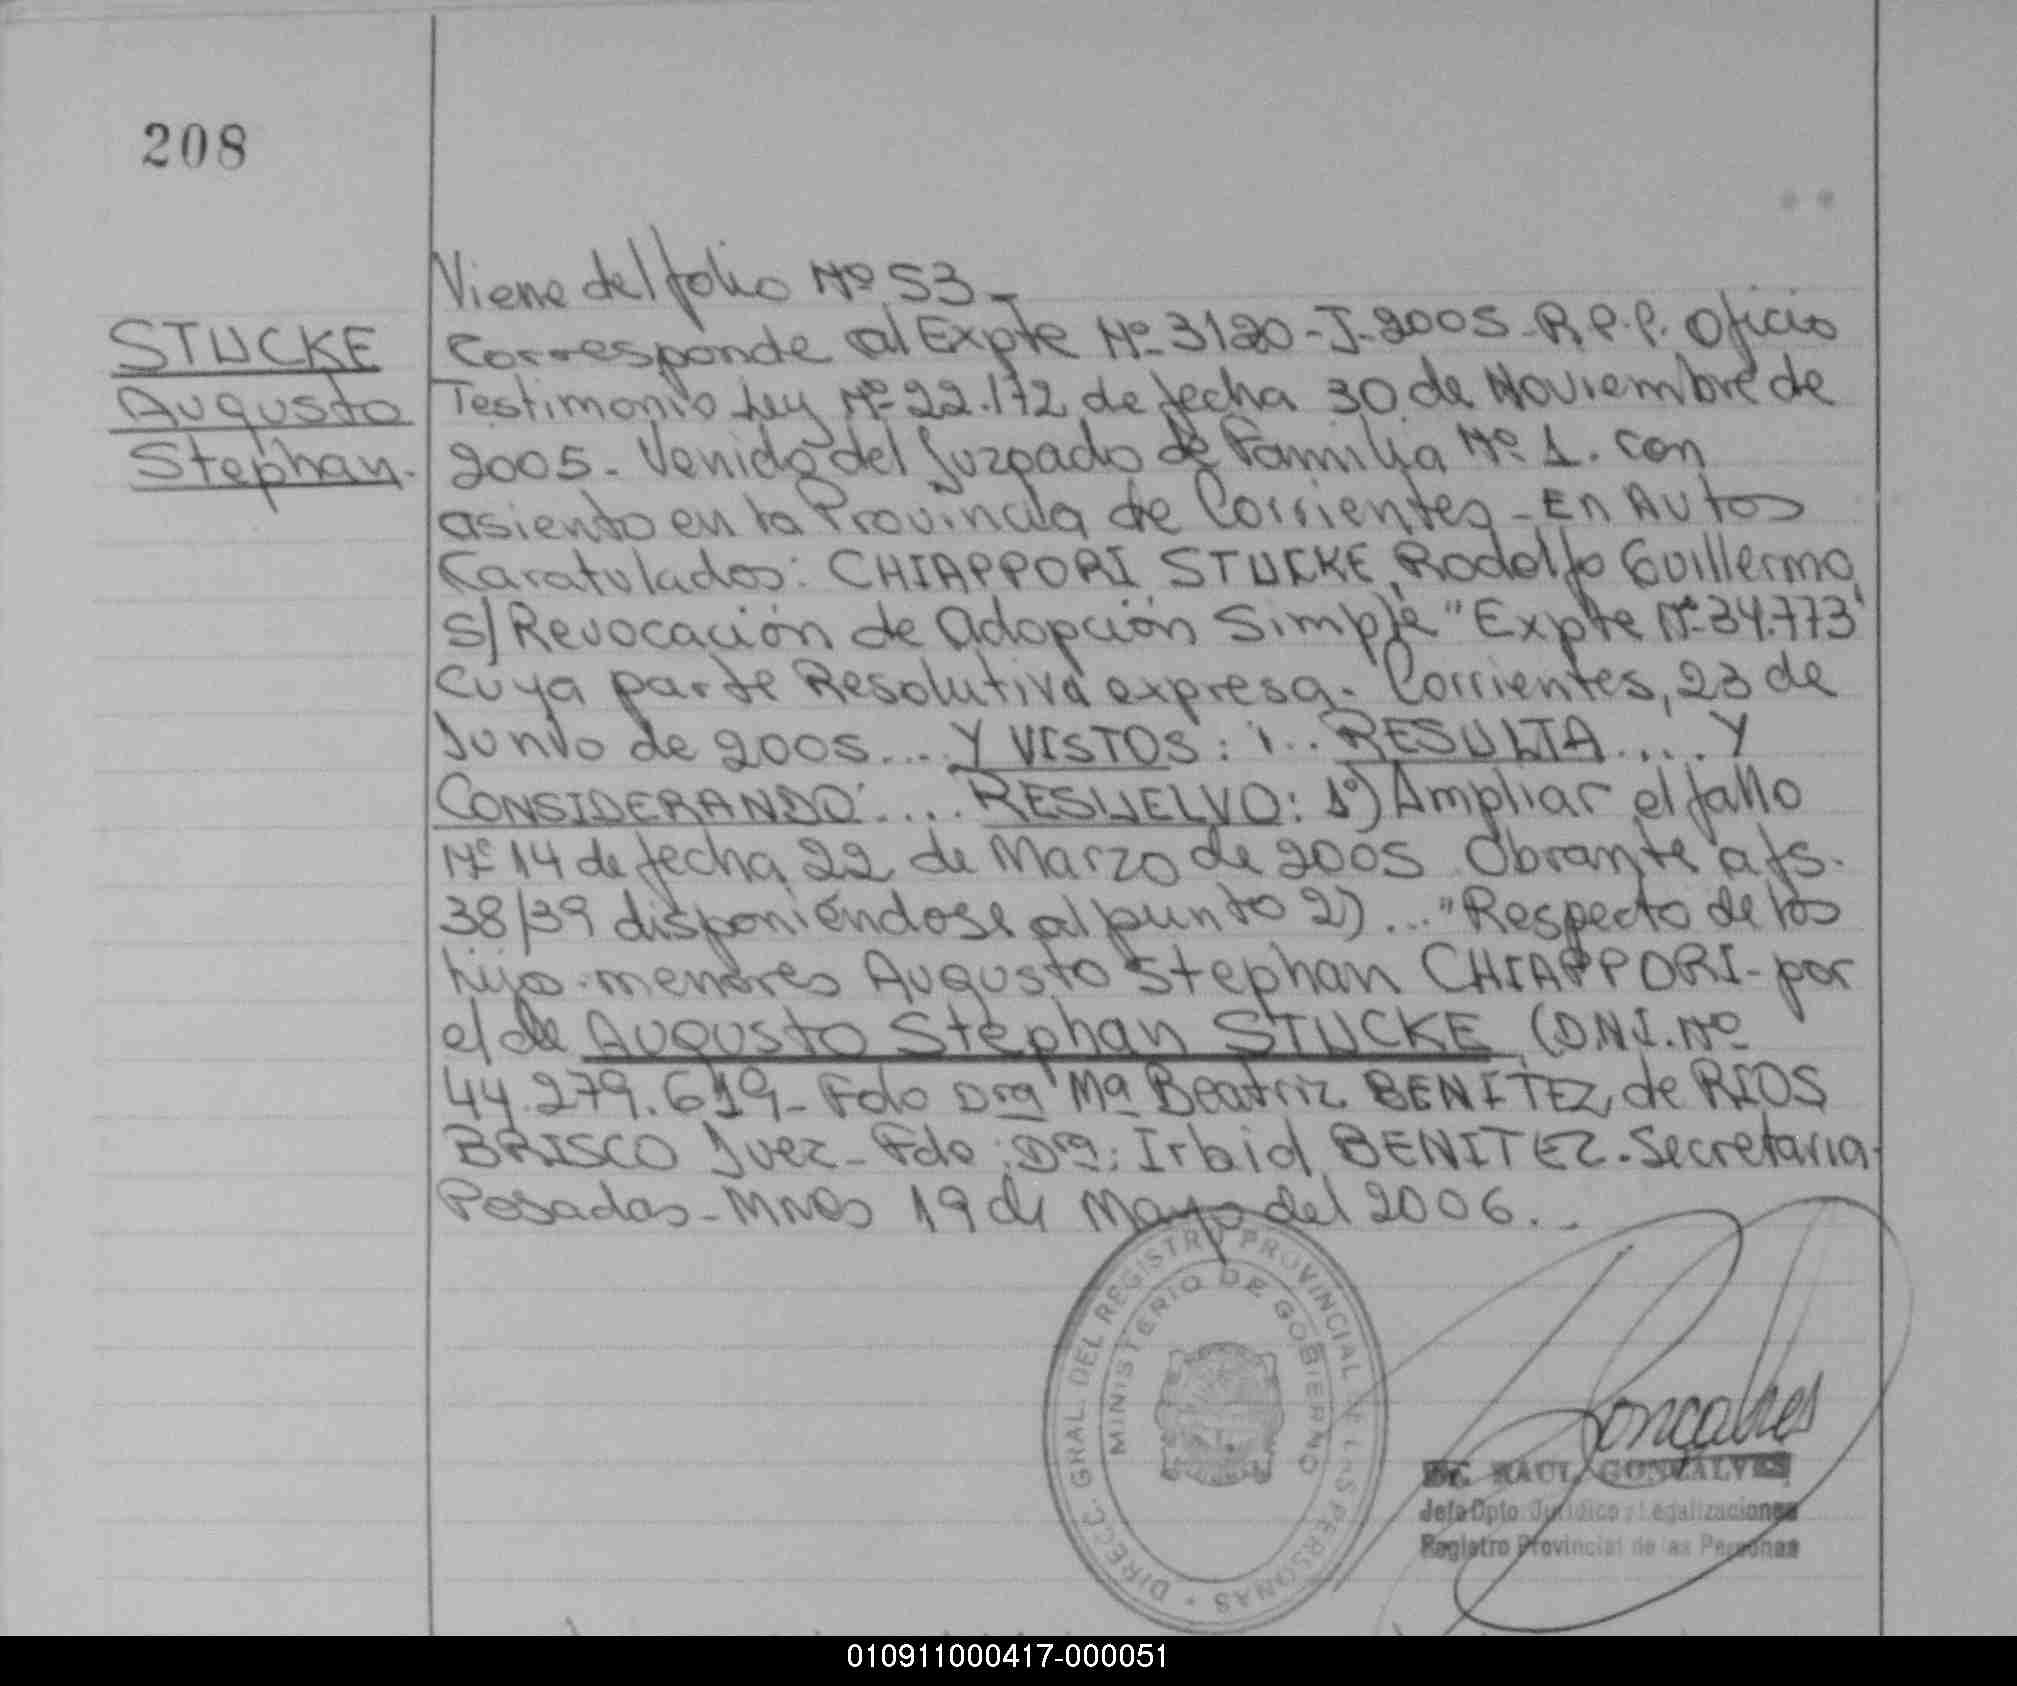 208
STUCKE
Augusto
Stephan.
Viene del folio Nº 53 -
Corresponde al Expte Nº 3120-J-2005-R.P.P. Oficio
Testimonio Ley Nº 22.172 de fecha 30 de Noviembre de
2005- Venido del Juzgado de Familia Nº 1. con
asiento en la Provincia de Corrientes - En Autos
Caratulados: CHIAPPORI STUCKE, Rodolfo Guillermo
S/ Revocación de Adopción Simple "Expte Nº 34.773"
Cuya parte Resolutiva expresa- Corrientes, 23 de
Junio de 2005.... Y VISTOS: ... RESULTA .... Y
CONSIDERANDO: .... RESUELVO: 1º) Ampliar el fallo
Nº 14 de fecha 22 de Marzo de 2005 Obrante a fs.
38/39 disponiéndose al punto 2) ... "Respecto de los
hijos menores Augusto Stephan CHIAPPORI- por
el de Augusto Stephan STUCKE (D.N.I. Nº
44.279.619- Fdo Dra Mª Beatriz BENITEZ de RIOS
BRISCO Juez- Fdo: Dra: Irbid BENITEZ. Secretaria-
Posadas- Mnes 19 de Mayo del 2006...
DIRECC. GRAL. DEL REGISTRO PROVINCIAL DE LAS PERSONAS
MINISTERIO DE GOBIERNO
Gonçalves
RAUL GONCALVES
Jefe Dpto Jurídico y Legalizaciones
Registro Provincial de las Personas
010911000417-000051